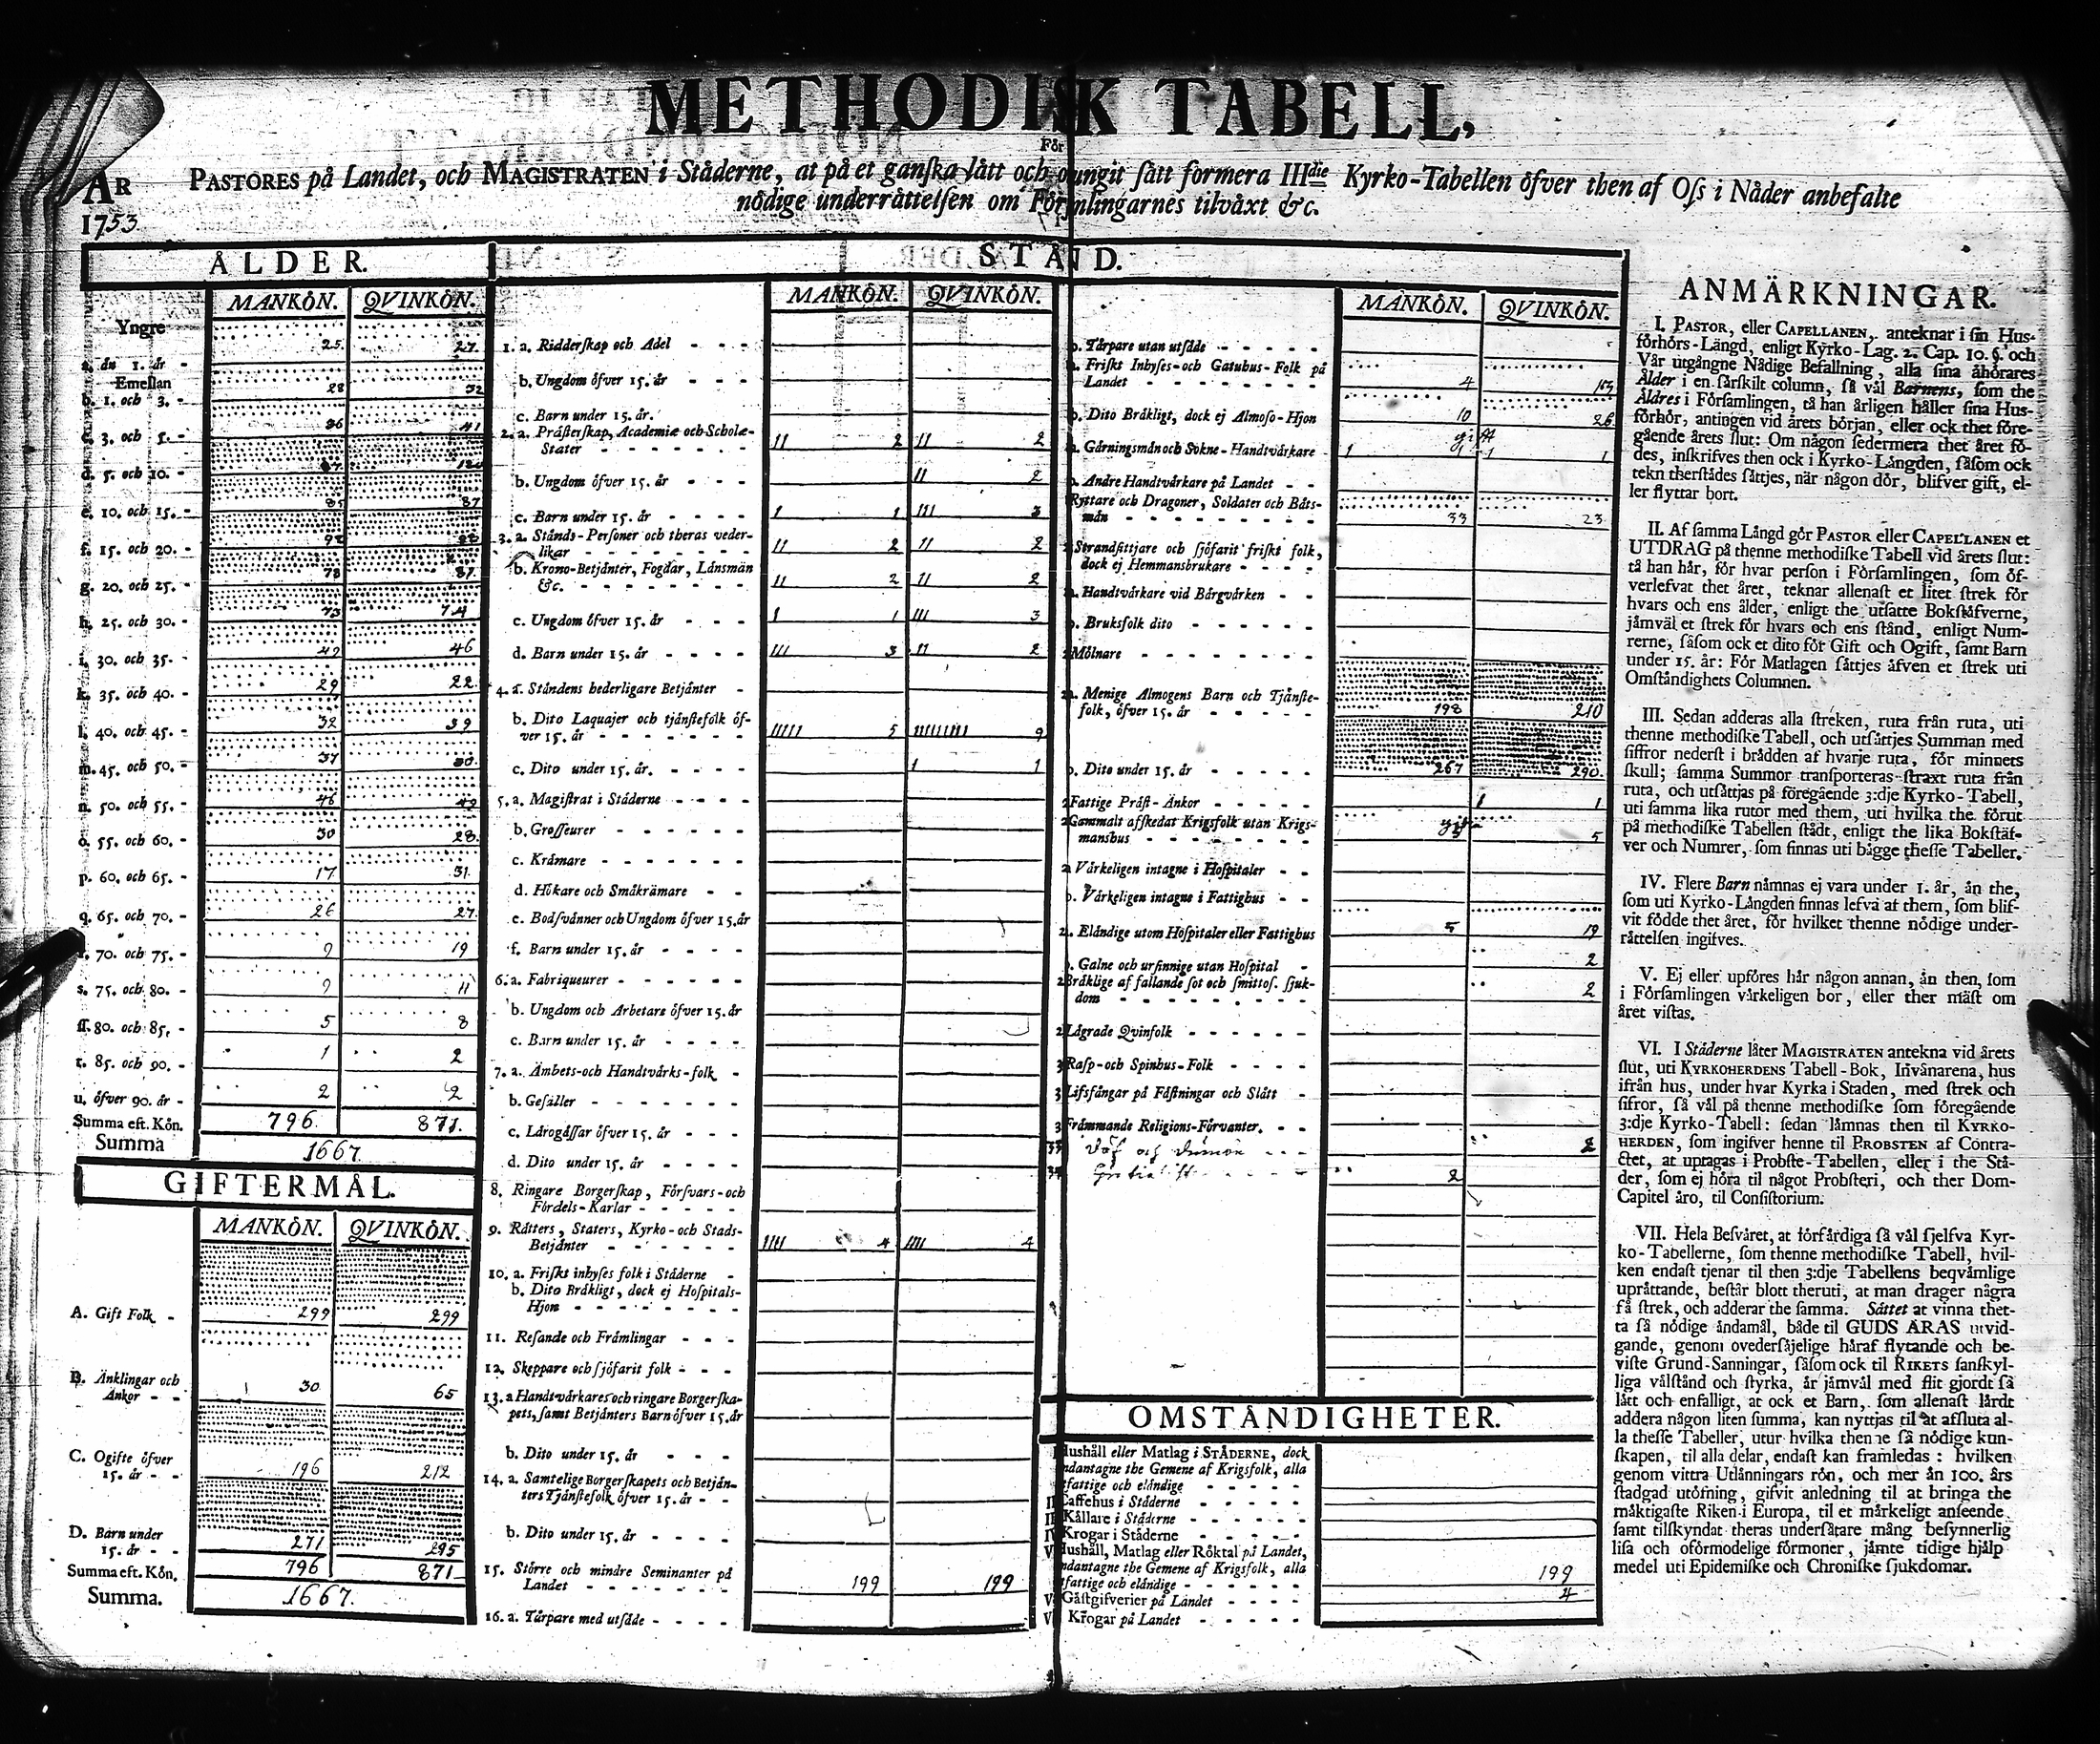 METHODISK TABELL,
För
PASTORES på Landet, och MAGISTRATEN i Ståderne, at på et ganſka lått och oungit ſått formera IIIdie Kyrko-Tabellen öfver then af Oſs i Nåder anbefalte
nödige underråttelſen om Förſamlingarnes tilvåxt &c.
ÅR
1753
ÅLDER.
MANKÖN. QVINKÖN.
Yngre
ån 1. år - 25. 27.
Emellan
b. 1. och 3. - 28 32
c. 3. och 5. - 36 41
d. 5. och 10. -
e. 10. och 15. - 85 87
f. 15. och 20. - 92
g. 20. och 25. - 78 81
h. 25. och 30. - 73 74
i. 30. och 35. - 42 46
k. 35. och 40. - 29 22
l. 40. och 45. - 32 39
m. 45. och 50. - 37 30.
n. 50. och 55. - 46 42
o. 55. och 60. - 30 28.
p. 60. och 65. - 17 31.
q. 65. och 70. - 26 27.
r. 70. och 75. - 9 19
s. 75. och 80. - 9 11
ſſ. 80. och 85. - 5 8
t. 85. och 90. - 1 2
u. öfver 90. år - 2 2
Summa eft. Kön. 796. 871.
Summa 1667.
GIFTERMÅL.
MANKÖN. QVINKÖN.
A. Gift Folk - 299 299
B. Änklingar och
Änkor - - 30 65
C. Ogifte öfver
15. år - - 196 212
D. Barn under
15. år - - 271 295
Summa eft. Kön. 796 871
Summa. 1667.
STÅND.
MANKÖN. QVINKÖN.
1. a. Ridderſkap och Adel - - - -
b. Ungdom öfver 15. år - - -
c. Barn under 15. år.
2. a. Präſterſkap, Academiæ och Scholæ-
Stater - - - - - - - 11 2 11 2
b. Ungdom öfver 15. år - - - 11 2
c. Barn under 15. år - - - - 1 1 111 3
3. a. Stånds-Perſoner och theras veder-
likar - - - - - - - 11 2 11 2
b. Krono-Betjånter, Fogdar, Lånsmän
&c. - - - - - - - 11 2 11 2
c. Ungdom öfver 15. år - - - 1 1 111 3
d. Barn under 15. år - - - - 111 3 11 2
4. a. Ståndens hederligare Betjånter -
b. Dito Laquajer och tjånſtefolk öf-
ver 15. år - - - - - - - 11111 5 111111111 9
c. Dito under 15. år. - - - - 1 1
5. a. Magiſtrat i Ståderne - - - -
b. Groſſeurer - - - - - -
c. Kråmare - - - - - - -
d. Hökare och Småkrämare - -
e. Bodſvånner och Ungdom öfver 15. år
f. Barn under 15. år - - - -
6. a. Fabriqueurer - - - - - -
b. Ungdom och Arbetare öfver 15. år
c. Barn under 15. år - - - -
7. a. Ämbets-och Handtvårks-folk -
b. Geſåller - - - - - - -
c. Lårogåſſar öfver 15. år - - -
d. Dito under 15. år - - - -
8. Ringare Borgerſkap, Förſvars-och
Fördels-Karlar - - - - -
9. Råtters, Staters, Kyrko-och Stads-
Betjånter - - - - - - 1111 4 1111 4
10. a. Friſkt inhyſes folk i Ståderne -
b. Dito Bråkligt, dock ej Hoſpitals-
Hjon - - - - - - - -
11. Reſande och Fråmlingar - - -
12. Skeppare och ſjöfarit folk - - -
13. a Handtvårkares och ringare Borgerſka-
pets, ſamt Betjånters Barn öfver 15. år
b. Dito under 15. år - - - -
14. a. Samtelige Borgerſkapets och Betjån-
ters Tjånſtefolk öfver 15. år - -
b. Dito under 15. år - - - -
15. Större och mindre Seminanter på
Landet - - - - - - - 199 199
16. a. Tårpare med utſåde - - - -
MANKÖN. QVINKÖN.
b. Tårpare utan utſåde - - - - -
Friſkt Inhyſes-och Gatuhus-Folk på
Landet - - - - - - - - 4
b. Dito Bråkligt, dock ej Almoſo-Hjon 10 26
Gårningsmån och Sokne-Handtvårkare 1 1 1
b. Andre Handtvårkare på Landet - -
Ryttare och Dragoner, Soldater och Båts-
mån - - - - - - - - - 33 23
Strandſittjare och ſjöfarit friſkt folk,
dock ej Hemmansbrukare - - - -
Handtvårkare vid Bårgvårken - -
b. Bruksfolk dito - - - - - -
Mölnare - - - - - - - -
a. Menige Almogens Barn och Tjånſte-
folk, öfver 15. år - - - - - 198 210
b. Dito under 15. år - - - - - 267 290.
Fattige Pråſt-Änkor - - - - - 1 1
Gammalt afſkedat Krigsfolk utan Krigs-
manshus - - - - - - - 5
a Vårkeligen intagne i Hoſpitaler - -
b. Vårkeligen intagne i Fattighus - -
a. Elåndige utom Hoſpitaler eller Fattighus 5 19
b. Galne och urſinnige utan Hoſpital - 2
Bråklige af fallande ſot och ſmittoſ. ſjuk-
dom - - - - - - - - - 2
Lågrade Qvinfolk - - - - - -
Raſp-och Spinhus-Folk - - - -
Lifsfångar på Fåſtningar och Slått -
Fråmmande Religions-Förvanter. - -
33 och - - - 2
34 - - - 2
OMSTÅNDIGHETER.
Hushåll eller Matlag i STÅDERNE, dock
undantagne the Gemene af Krigsfolk, alla
fattige och elåndige - - - - -
Caffehus i Ståderne - - - - -
Kållare i Ståderne - - - - -
Krogar i Ståderne - - - - -
Hushåll, Matlag eller Röktal på Landet,
undantagne the Gemene af Krigsfolk, alla
fattige och elåndige - - - - - 199
Gåſtgifverier på Landet - - - - 4
Krogar på Landet - - - - -
ANMÄRKNINGAR.
I. PASTOR, eller CAPELLANEN, anteknar i ſin Hus-
förhörs-Längd, enligt Kyrko-Lag. 2. Cap. 10. §. och
Vår utgångne Nådige Befallning, alla ſina åhörares
Ålder i en ſårſkilt column, ſå vål Barnens, ſom the
Äldres i Förſamlingen, tå han årligen håller ſina Hus-
förhör, antingen vid årets början, eller ock thet före-
gående årets ſlut: Om någon ſedermera thet året fö-
des, inſkrifves then ock i Kyrko-Långden, ſåſom ock
tekn therſtådes ſåttjes, när någon dör, blifver gift, el-
ler flyttar bort.
II. Af ſamma Långd gör PASTOR eller CAPELLANEN et
UTDRAG på thenne methodiſke Tabell vid årets ſlut:
tå han hår, för hvar perſon i Förſamlingen, ſom öf-
verlefvat thet året, teknar allenaſt et litet ſtrek för
hvars och ens ålder, enligt the utſatte Bokſtåfverne,
jåmväl et ſtrek för hvars och ens ſtånd, enligt Num-
rerne, ſåſom ock et dito för Gift och Ogift, ſamt Barn
under 15. år: För Matlagen ſåttjes åfven et ſtrek uti
Omſtåndighets Columnen.
III. Sedan adderas alla ſtreken, ruta från ruta, uti
thenne methodiſke Tabell, och utſåttjes Summan med
ſiffror nederſt i brådden af hvarje ruta, för minnets
ſkull; ſamma Summor tranſporteras ſtraxt ruta från
ruta, och utſåttjas på föregående 3:dje Kyrko-Tabell,
uti ſamma lika rutor med them, uti hvilka the förut
på methodiſke Tabellen ſtådt, enligt the lika Bokſtåf-
ver och Numrer, ſom finnas uti bågge theſſe Tabeller.
IV. Flere Barn nåmnas ej vara under 1. år, ån the,
ſom uti Kyrko-Långden finnas lefva af them, ſom blif-
vit födde thet året, för hvilket thenne nödige under-
råttelſen ingifves.
V. Ej eller upföres hår någon annan, ån then, ſom
i Förſamlingen vårkeligen bor, eller ther måſt om
året viſtas.
VI. I Ståderne låter MAGISTRATEN antekna vid årets
ſlut, uti KYRKOHERDENS Tabell-Bok, Invånarena, hus
ifrån hus, under hvar Kyrka i Staden, med ſtrek och
ſifror, ſå vål på thenne methodiſke ſom föregående
3:dje Kyrko-Tabell: ſedan låmnas then til KYRKO-
HERDEN, ſom ingifver henne til PROBSTEN af Contra-
ctet, at uptagas i Probſte-Tabellen, eller i the Stå-
der, ſom ej höra til något Probſteri, och ther Dom-
Capitel åro, til Conſiſtorium.
VII. Hela Beſvåret, at förfårdiga ſå vål ſjelfva Kyr-
ko-Tabellerne, ſom thenne methodiſke Tabell, hvil-
ken endaſt tjenar til then 3:dje Tabellens beqvåmlige
upråttande, beſtår blott theruti, at man drager några
få ſtrek, och adderar the ſamma. Såttet at vinna thet-
ta ſå nödige åndamål, både til GUDS ÅRAS utvid-
gande, genom ovederſåjelige håraf flytande och be-
viſte Grund-Sanningar, ſåſom ock til RIKETS ſanſkyl-
liga vålſtånd och ſtyrka, år jåmvål med flit gjordt ſå
lått och enfalligt, at ock et Barn, ſom allenaſt lårdt
addera någon liten ſumma, kan nyttjas til at affluta al-
la theſſe Tabeller, utur hvilka thenne ſå nödige kun-
ſkapen, til alla delar, endaſt kan framledas: hvilken
genom vittra Utlånningars rön, och mer ån 100. års
ſtadgad utöfning, gifvit anledning til at bringa the
måktigaſte Riken i Europa, til et mårkeligt anſeende,
ſamt tilſkyndat theras underſåtare mång beſynnerlig
liſa och oförmodelige förmoner, jåmte tidige hjålp
medel uti Epidemiſke och Chroniſke ſjukdomar.